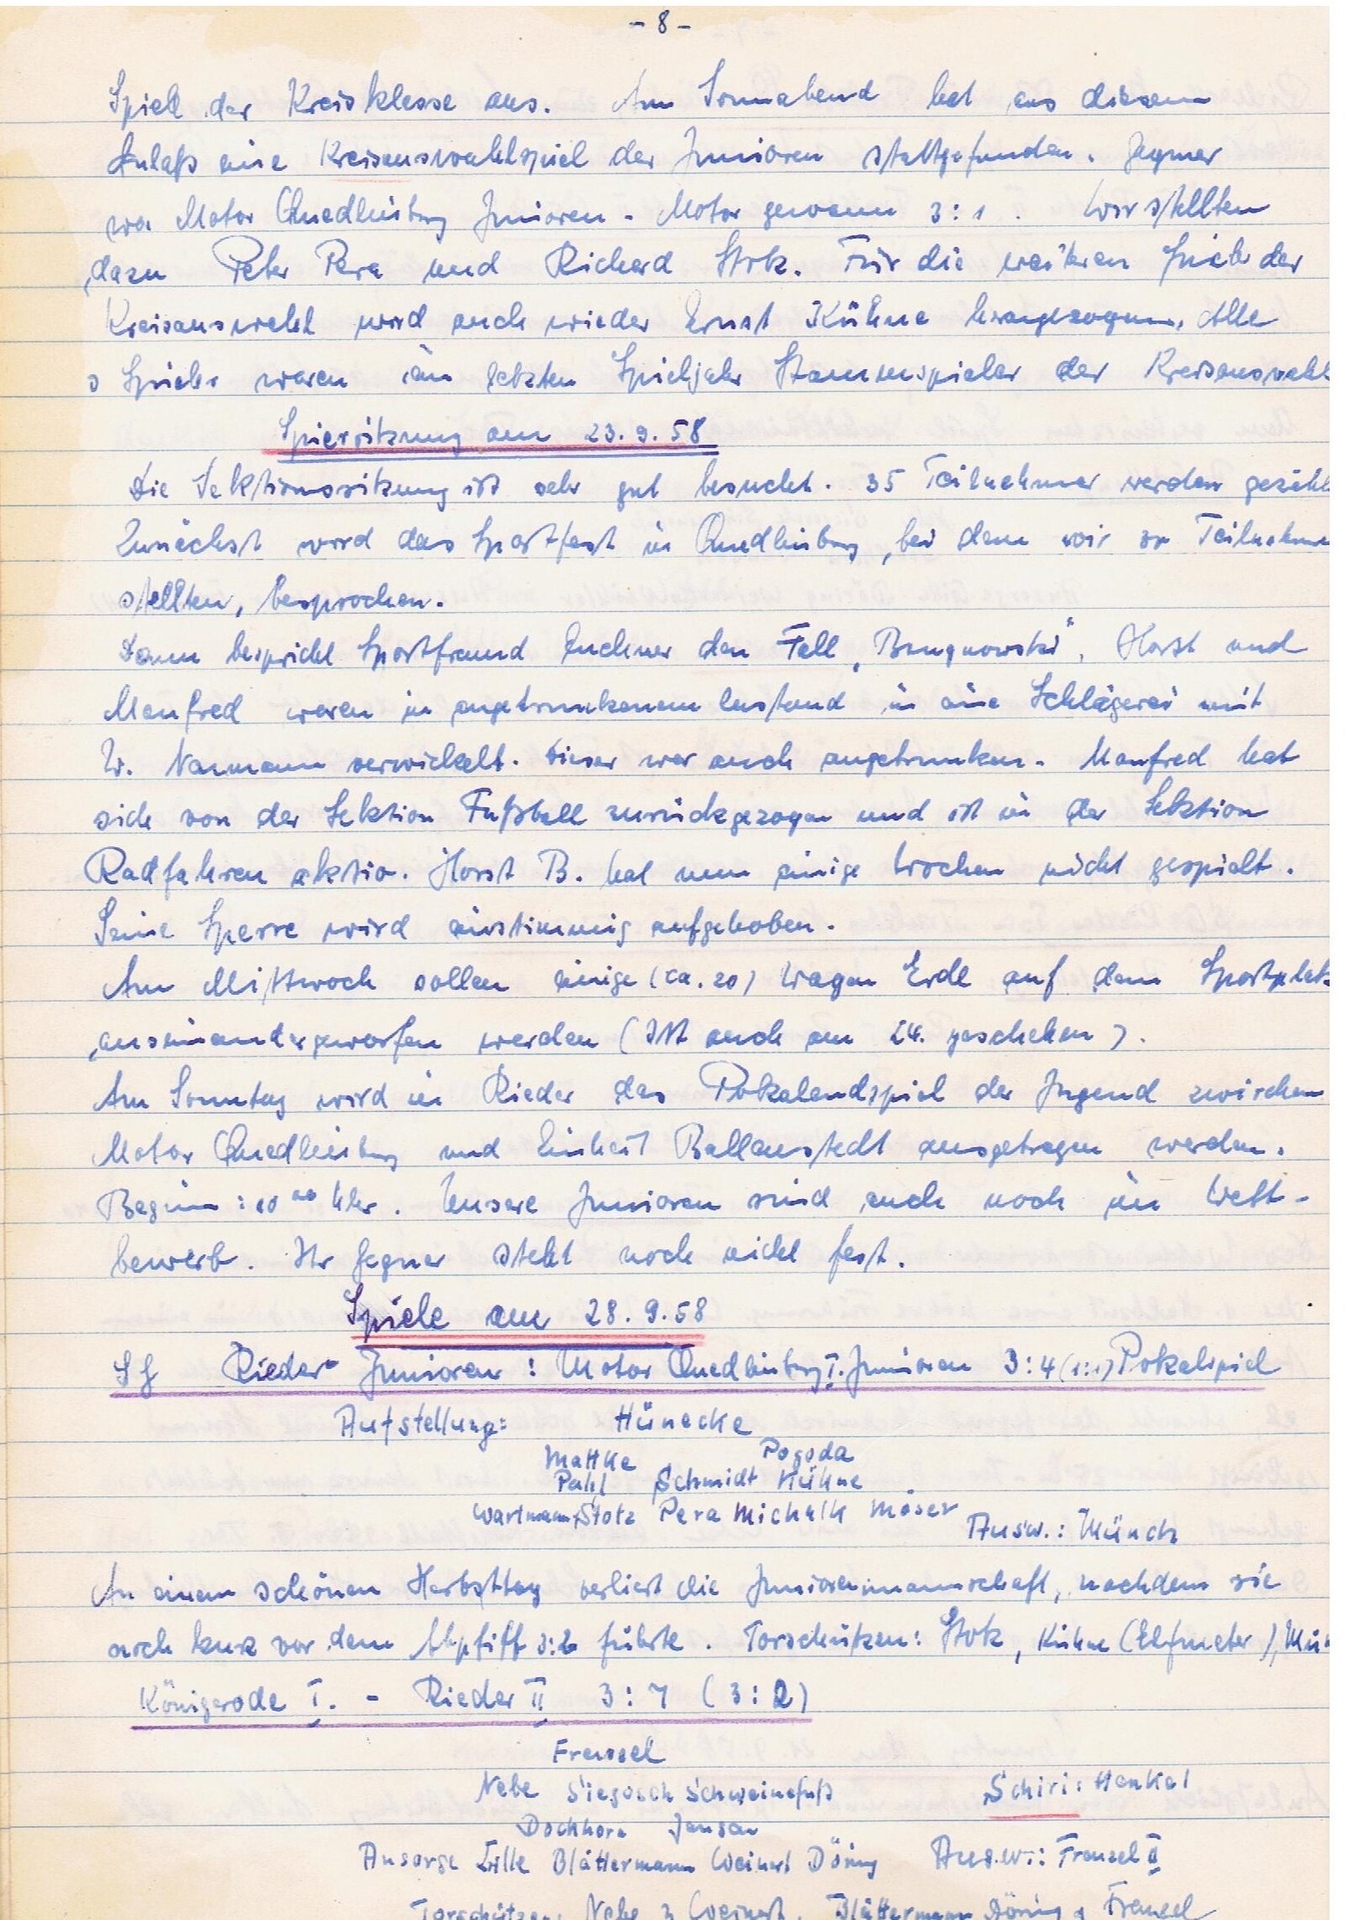 - 8 -
Spiele der Kreisklasse aus. Am Sonnabend hat aus diesem
Anlaß eine Kreisauswahlspiel der Junioren stattgefunden. Gegner
war Motor Quedlinburg Junioren - Motor gewann 3:1. Wir stellten
dazu Peter Pera und Richard Stotz. Für die weiteren Spiele der
Kreisauswahl wird auch wieder Ernst Kühne herangezogen. Alle
3 Spieler waren im letzten Spieljahr Stammspieler der Kreisauswahl
am 23.9.58
Die Sektionssitzung ist sehr gut besucht. 35 Teilnehmer werden gezähl
Zunächst wird das Sportfest in Quedlinburg, bei dem wir 30 Teilnehmer
stellten, besprochen.
Dann bespricht Sportfreund den Fall „ ". Horst und
Manfred waren in angetrunkenem Zustand in eine Schlägerei mit
W. Naumann verwickelt. Dieser war auch angetrunken. Manfred hat
sich von der Sektion Fußball zurückgezogen und ist in der Sektion
Radfahren aktiv. Horst B. hat nun einige Wochen nicht gespielt.
Seine Sperre wird einstimmig aufgehoben.
Am Mittwoch sollen einige (ca. 20) Wagen Erde auf dem Sportplatz
auseinandergeworfen werden (Ist auch am 24. geschehen).
Am Sonntag wird in Rieder das Pokalendspiel der Jugend zwischen
Motor Quedlinburg und Einheit Ballenstedt ausgetragen werden.
Beginn: 10 00 Uhr. Unsere Junioren sind auch noch im Wett-
bewerb. Ihr Gegner steht noch nicht fest.
Spiele am 28.9.58
SG Rieder Junioren : Motor Quedlinburg I. Junioren 3:4 (1:1) Pokalspiel
Aufstellung: Hünecke
Mattke Pogoda
Pahl Schmidt Kühne
Wartmann, Stotz Pera Michalk Möser Ausw.: Münch
An einem schönen Herbsttag verliert die Juniorenmannschaft, nachdem sie
noch kurz vor dem Abpfiff 3:2 führte. Torschützen: Stotz, Kühne (Elfmeter), Mün
Königerode I. - Rieder II 3:7 (3:2)
Frenzel
Nebe Siegosch Schweinefuß Schiri: Henkel
Dochhorn Jensen
Ansorge Zille Blättermann Weinert Döring Ausw.: Frenzel II
Torschützen: Nebe 2 Weinert, Blättermann Döring, Frenzel